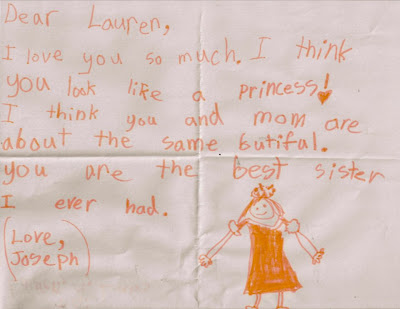 Dear Lauren,
I love you so much. I think
you look like a princess!
I think you and mom are
about the same butiful.
you are the best sister
I ever had.
(Love,
Joseph)